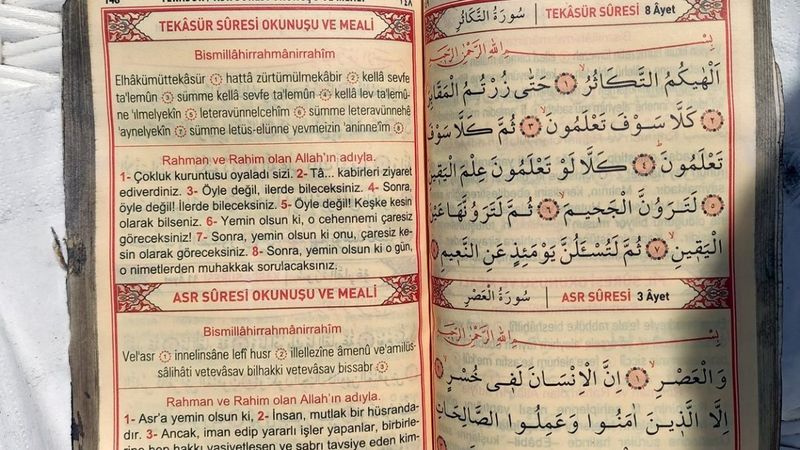 TEKÂSÜR SÛRESİ OKUNUŞU VE MEALİ
Bismillâhirrahmânirrahîm
Elhâkümüttekâsür ① hattâ zürtümülmekâbir ② kellâ sevfe
ta'lemûn ③ sümme kellâ sevfe ta'lemûn ④ kellâ lev ta'lemû-
ne 'ılmelyekîn ⑤ leteravünnelcehîm ⑥ sümme leteravünnehê
'aynelyekîn ⑦ sümme letüs-elünne yevmeizin 'aninneîm ⑧
Rahman ve Rahim olan Allah'ın adıyla.
1- Çokluk kuruntusu oyaladı sizi. 2- Tâ... kabirleri ziyaret
ediverdiniz. 3- Öyle değil, ilerde bileceksiniz. 4- Sonra,
öyle değil! İlerde bileceksiniz. 5- Öyle değil! Keşke kesin
olarak bilseniz. 6- Yemin olsun ki, o cehennemi çaresiz
göreceksiniz! 7- Sonra, yemin olsun ki onu, çaresiz ke-
sin olarak göreceksiniz. 8- Sonra, yemin olsun ki o gün,
o nimetlerden muhakkak sorulacaksınız.
ASR SÛRESİ OKUNUŞU VE MEALİ
Bismillâhirrahmânirrahîm
Vel'asr ① innelinsâne lefî husr ② illellezîne âmenû ve'amilüs-
sâlihâti vetevâsav bilhakki vetevâsav bissabr ③
Rahman ve Rahim olan Allah'ın adıyla.
1- Asr'a yemin olsun ki, 2- İnsan, mutlak bir hüsranda-
dır. 3- Ancak, iman edip yararlı işler yapanlar, birbirle-
rine hep hakkı vasiyetleşen ve sabrı tavsiye eden kim-
سُورَةُ التَّكَاثُرِ | TEKÂSÜR SÛRESİ 8 Âyet
بِسْمِ اللّٰهِ الرَّحْمٰنِ الرَّحِيمِ
اَلْهٰيكُمُ التَّكَاثُرُۙ ﴿١﴾ حَتّٰى زُرْتُمُ الْمَقَابِرَ
﴿٢﴾ كَلَّا سَوْفَ تَعْلَمُونَۙ ﴿٣﴾ ثُمَّ كَلَّا سَوْفَ
تَعْلَمُونَۜ ﴿٤﴾ كَلَّا لَوْ تَعْلَمُونَ عِلْمَ الْيَقِينِۜ
﴿٥﴾ لَتَرَوُنَّ الْجَحِيمَۙ ﴿٦﴾ ثُمَّ لَتَرَوُنَّهَا عَيْنَ
الْيَقِينِۙ ﴿٧﴾ ثُمَّ لَتُسْـَٔلُنَّ يَوْمَئِذٍ عَنِ النَّعِيمِ
سُورَةُ الْعَصْرِ | ASR SÛRESİ 3 Âyet
بِسْمِ اللّٰهِ الرَّحْمٰنِ الرَّحِيمِ
وَالْعَصْرِۙ ﴿١﴾ اِنَّ الْاِنْسَانَ لَفٖى خُسْرٍۙ
اِلَّا الَّذٖينَ اٰمَنُوا وَعَمِلُوا الصَّالِحَاتِ